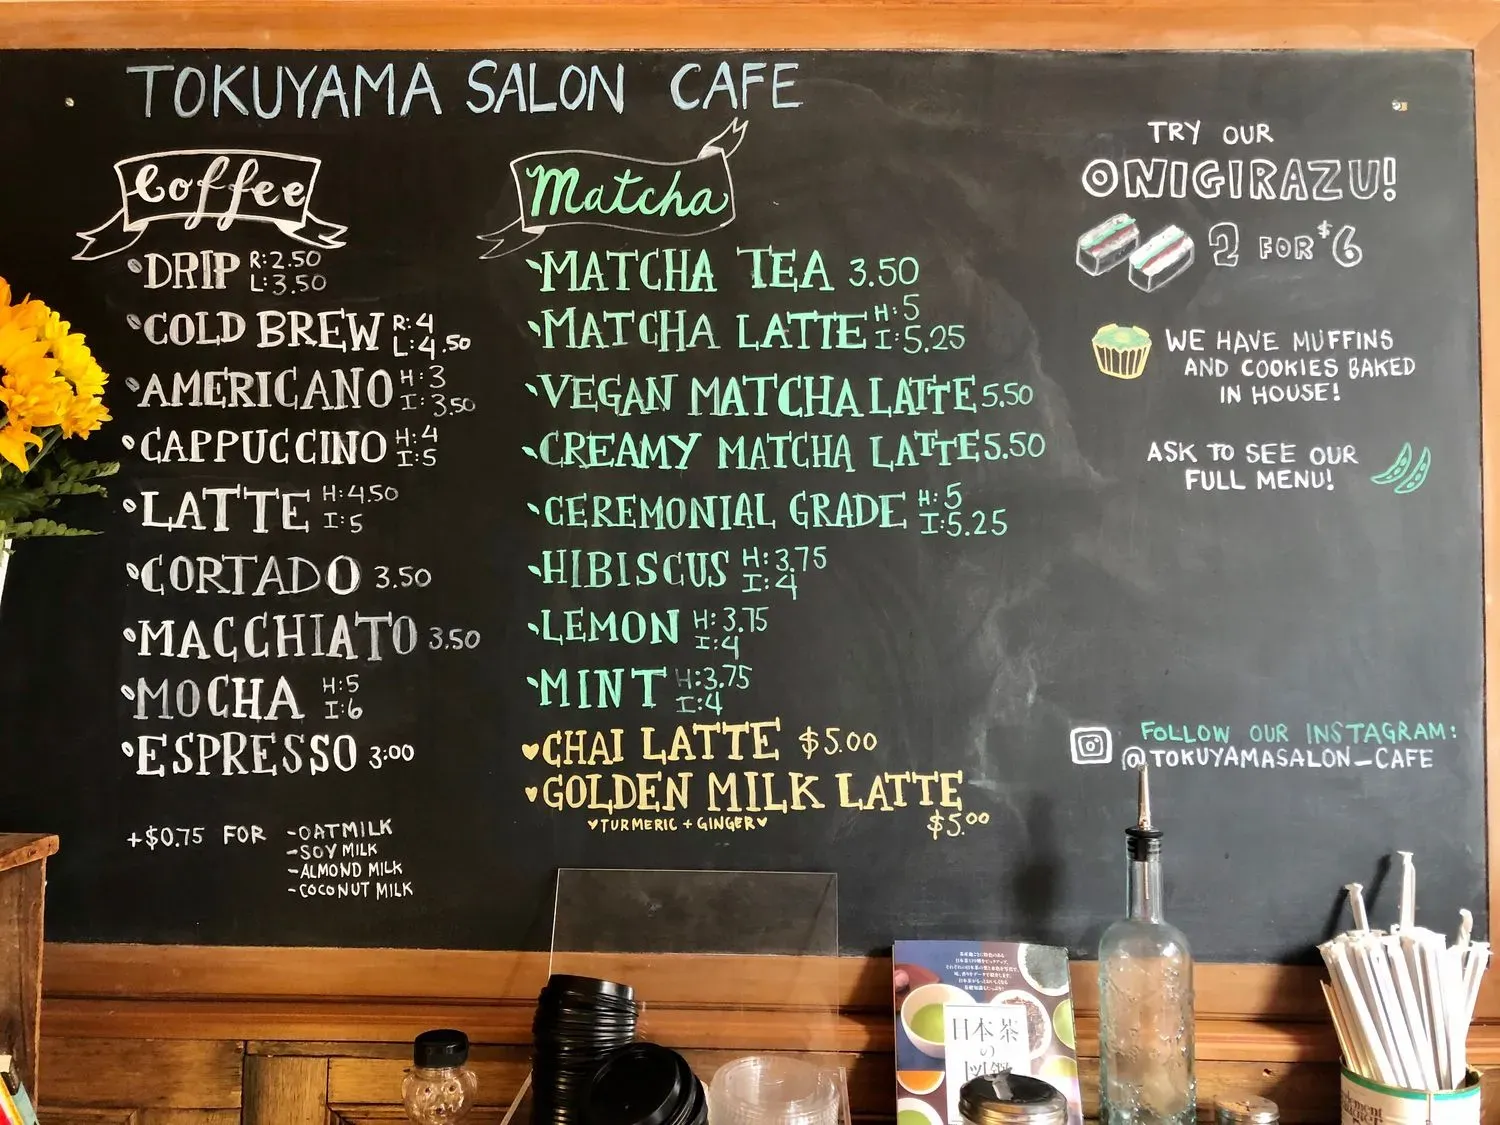 TOKUYAMA SALON CAFE
Coffee
DRIP R: 2.50
L: 3.50
COLD BREW R: 4
L: 4.50
AMERICANO H: 3
I: 3.50
CAPPUCCINO H: 4
I: 5
LATTE H: 4.50
I: 5
CORTADO 3.50
MACCHIATO 3.50
MOCHA H: 5
I: 6
ESPRESSO 3:00
+$0.75 FOR -OATMILK
-SOY MILK
-ALMOND MILK
-COCONUT MILK
Matcha
MATCHA TEA 3.50
MATCHA LATTE H: 5
I: 5.25
VEGAN MATCHA LATTE 5.50
CREAMY MATCHA LATTE 5.50
CEREMONIAL GRADE H: 5
I: 5.25
HIBISCUS H: 3.75
I: 4
LEMON H: 3.75
I: 4
MINT H: 3.75
I: 4
CHAI LATTE $5.00
GOLDEN MILK LATTE
TURMERIC + GINGER $5.00
TRY OUR
ONIGIRAZU!
2 FOR $6
WE HAVE MUFFINS
AND COOKIES BAKED
IN HOUSE!
ASK TO SEE OUR
FULL MENU!
FOLLOW OUR INSTAGRAM:
@TOKUYAMASALON_CAFE
日本茶
の